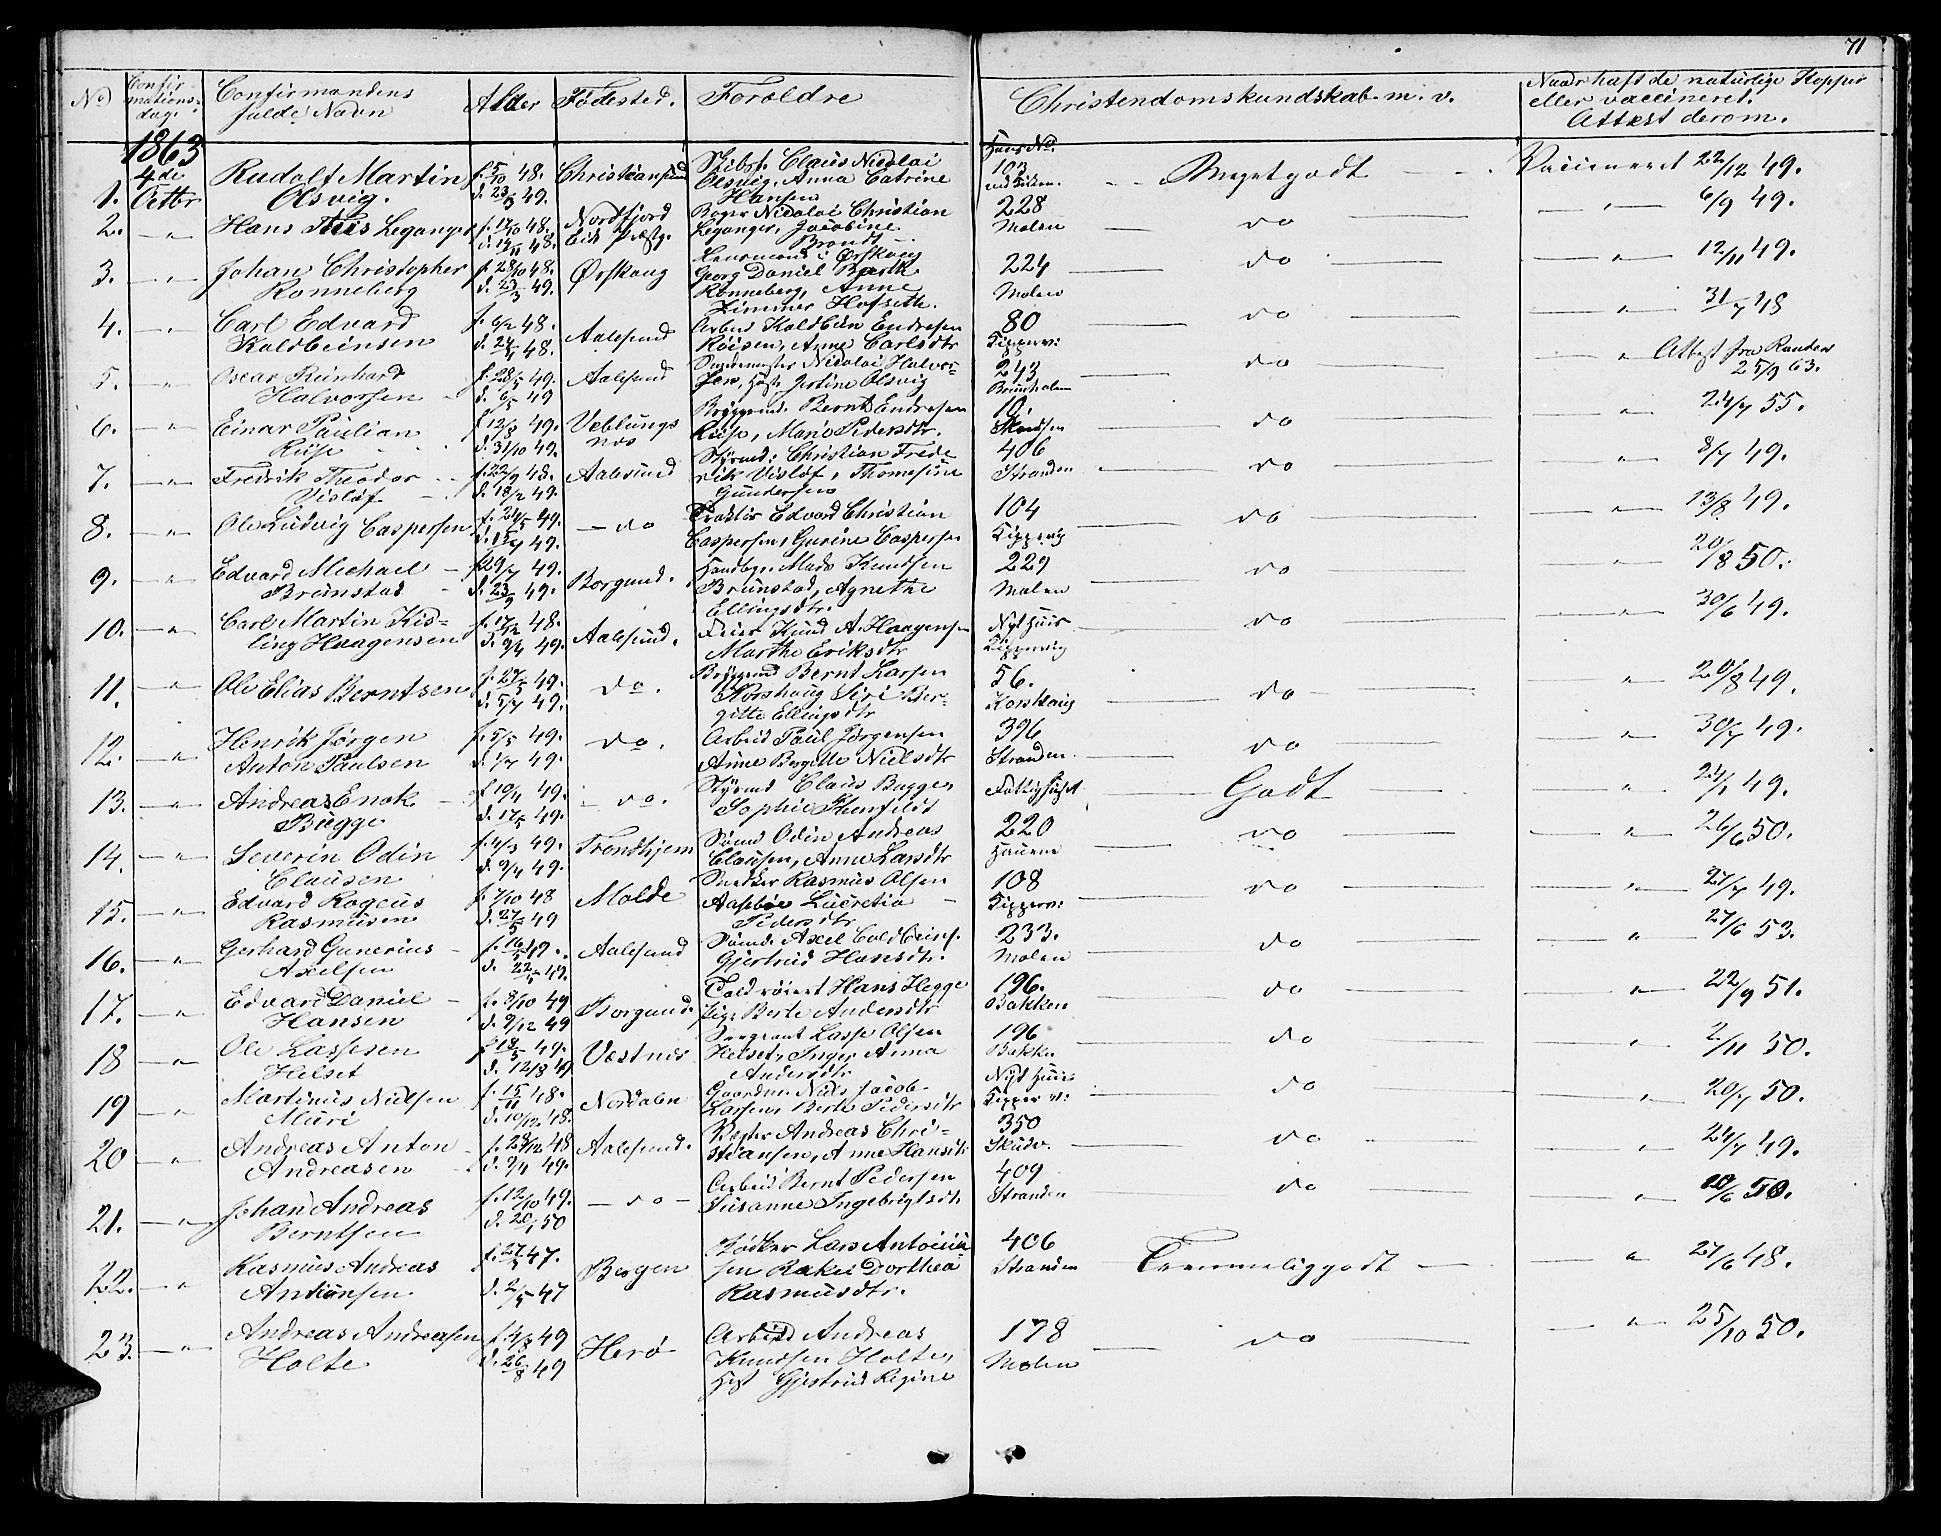 71
No Confirmationsdag. Confirmandens fulde Navn Alder Fødested. Forældre Christendomskundskab m. v. Naar haft de naturlige Kopper eller vaccineret. Attest derom.
1863
Huus No.
1. 4de Octbr Rudolf Martin Olsvig. f. 5/10 48. d. 23/3 49. Christiansund Skibsf. Claus Nicolai Olsvig, Anna Catrine Hansen 103 Meget godt Vaccineret 22/12 49.
2. — " Hans Leganger f. 17/10 48. d. 19/11 48. Nordfjord Eids Præstg. Nicolai Christian Leganger, Jacobine Brandt 228 Molen do — " — 6/9 49.
3. — " Johan Christopher Rønneberg f. 28/10 48. d. 23/3 49. Ørskoug Lensmand i Ørskoug Georg Daniel Barth Rønneberg, Anne Zimmer Hofseth. 224 Molen do — " — 12/11 49.
4. — " Carl Edvard Koldbeinsen f. 6/2 48. d. 24/4 48. Aalesund Arbeid Koldbein Endresen Røisen, Anne Carlsdtr 80 Kipperv: do — " 31/7 48
5. — " Oscar Reinhard Halvorsen f. 28/5 49. d. 6/5 49 Aalesund Nicolai Halvorsen, Jertine Olsvig 243 Brunholm do — " Attest fra Randers 25/9 63.
6. — " Einar Paulian Riise f. 12/8 49. d. 31/10 49. Veblungsnes Bryggemd. Bernt Endresen Riise, Marie Pedersdtr. 10. do — " — 24/7 55.
7. — " Fredrik Theodor Visløf f. 22/9 48. d. 18/2 49. Aalesund Styrmd: Christian Frederik Visløf, Thomesine Gundersen 406 Stranden do — " — 8/7 49.
8. — " Ole Ludvig Caspersen f. 24/5 49. d. 15/7 49. — do Edvard Christian Caspersen, Gurine Caspersen 104 Kipperv do — " — 13/8 49.
9. — " Edvard Michael Brunstad f. 29/7 49. d. 23/9 49. Borgund. Mads Knudsen Brunstad, Agnethe Ellingsdtr. 229 Molen do — " — 20/8 50.
10. — " Carl Martin Kisling Haagensen f. 17/12 48. d. 9/4 49. Aalesund. Feier Knud A. Haagensen Marthe Eriksdtr Nyt Huus Kippervig do — " — 30/6 49.
11. — " Ole Elias Berntsen f. 27/5 49. d. 5/7 49. do. Bryggemd Bernt Larsen Korshoug Siri Bergitte Ellingsdtr 56. Korshoug do " 20/8 49.
12. — " Henrik Jørgen Anton Paulsen f. 5/5 49. d. 1/7 49. do. Arbeid Paul Jørgensen Anne Bergitte Nielsdtr 396 Stranden do — " — 30/7 49.
13. — " Andreas Enok Bugge f. 19/4 49. d. 17/5 49. — do. Styrmd Claus Bugge, Sophie Fattighuset Godt " 24/1 49.
14. — " Severin Odin Clausen f. 4/3 49. d. 9/4 49. Trondhjem Sømd Odin Andreas Clausen, Anne Larsdtr 220 do " 26/6 50.
15. — " Edvard Rogeus Rasmusen f. 7/10 48 d. 27/5 49 Molde Snedker Rasmus Olsen Aasbøe Lucretia Pedersdtr 108 Kipperv: do — " — 27/7 49.
16. — " Gerhard Gunerius Axelsen f. 16/3 49. d. 22/4 49. Aalesund Sømd. Axel Coldbeins. Gjertrud Hansdtr. 233. Molen do — " — 27/6 53.
17. — " Edvard Daniel Hansen f. 3/10 49 d. 9/12 49 Borgund. Toldroiert Hans Hegge Pige Berte Andersdtr 196. Bakken do — " — 22/9 51.
18 — " Ole Lassesen Helset f. 18/5 49. d. 12/8 49 Vestnes Sergeant Lasse Olsen Helset, Inger Anna Andersdtr 196 Bakken do " 2/11 50.
19 — " Martinus Nielsen Muri f. 15/11 48. d. 10/12 48. Nordalen Gaardm. Niels Jacob Larsen, Berte Pedersdtr Nyt Huus Kipperv: do " 20/7 50.
20 — " Andreas Anton Andreasen f. 28/12 48 d. 9/4 49. Aalesund. Andreas Christiansen, Anne Hansdtr 350 do — " — 24/7 49.
21. — " Johan Andreas Berntsen f. 12/10 49. d. 20/1 50 — do — Arbeid Bernt Pedersen Susanne Ingebrigtsdtr 409 Stranden do — " — 10/6 50.
22. — " Rasmus Andreas Antonsen f. 27/3 47. d. 2/5 47 Bergen Bødker Lars Antonius sen Rakel Dorthea Rasmusdtr. 406 Stranden Temmelig godt — " — 27/6 48.
23. — " Andreas Andreasen Holte f. 4/8 49 d. 26/8 49 Herø Arbeid Andreas Knudsen Holte, Gjertrud Regine 178 Molen do — " — 25/10 50.